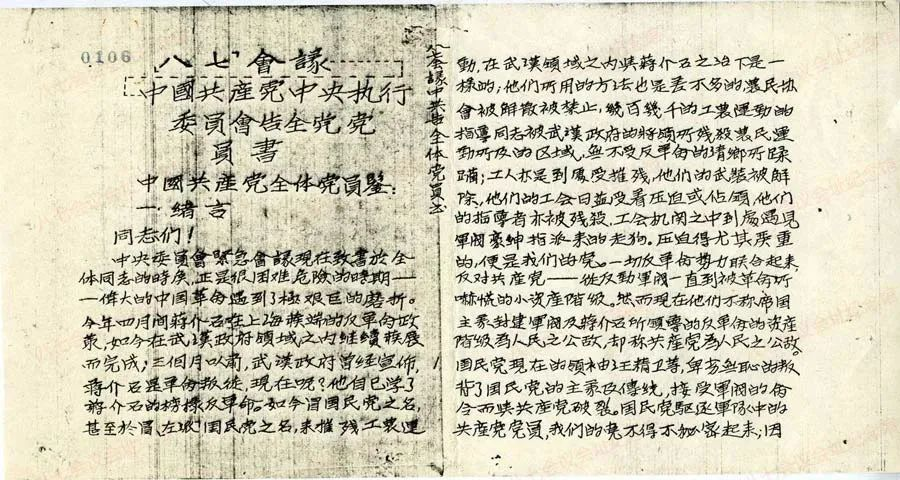 0106
八七會議
中國共產党中央执行
委員會告全党党
員書
中國共產党全体党員鑒：
一. 緒言
同志们！
中央委員會緊急會議現在致書於全
体同志的時矦，正是很困难危險的時期——
一偉大的中国革命遇到了極艱巨的磨折。
今年四月間蔣介石在上海發端的反革命政
策，如今在武漢政府領域之內継續發展
而完成；三個月以前，武漢政府曾經宣佈，
蔣介石是革命叛徒，現在呢？他自己学了
蔣介石的榜樣反革命。如今冒国民党之名，
甚至於冒“左派”国民党之名，来摧残工農運
八七会議中共告全体党員書
動，在武漢領域之内與蔣介石之治下是一
樣的；他们所用的方法也是差不多的，農民协
會被解散被禁止，幾百幾千的工農運動的
指導同志被武漢政府的将領所残殺，農民運
動所及的区域，無不受反革命的清鄉所蹂
躪；工人亦是到處受摧残，他们的武裝被解
除，他们的工会日益受着压迫或佔領，他们
的指導者亦被残殺，工会机関之中到處遇見
軍閥豪紳指派来的走狗。压迫得尤其嚴重
的，便是我们的党。一切反革命勢力联合起来，
反对共產党——從反動軍閥一直到被革命所
嚇慌的小資産階级。然而現在他们不称帝国
主義封建軍閥及蔣介石所領導的反革命的資產
階级為人民之公敌，却称共產党為人民之公敌。
国民党現在的領袖汪精卫等，卑劣無恥的叛
背了国民党的主義及傳统，接受軍閥的命
令而與共產党破裂。国民党驅逐軍隊中的
共產党党員，我们的党不得不秘密起来；因